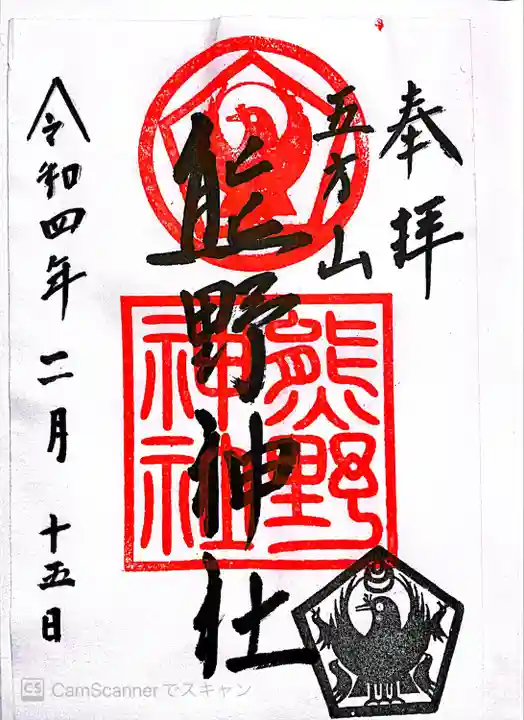 奉拝
五方山
熊野神社
熊野
神社
令和四年 二月 十五日
CS CamScannerでスキャン